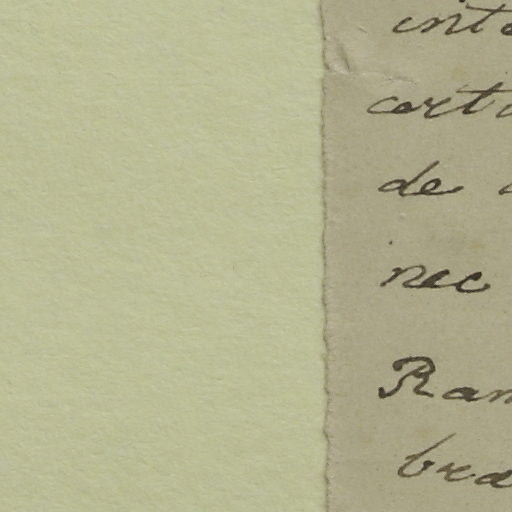 inte
certa
de
nec
Ram
bra